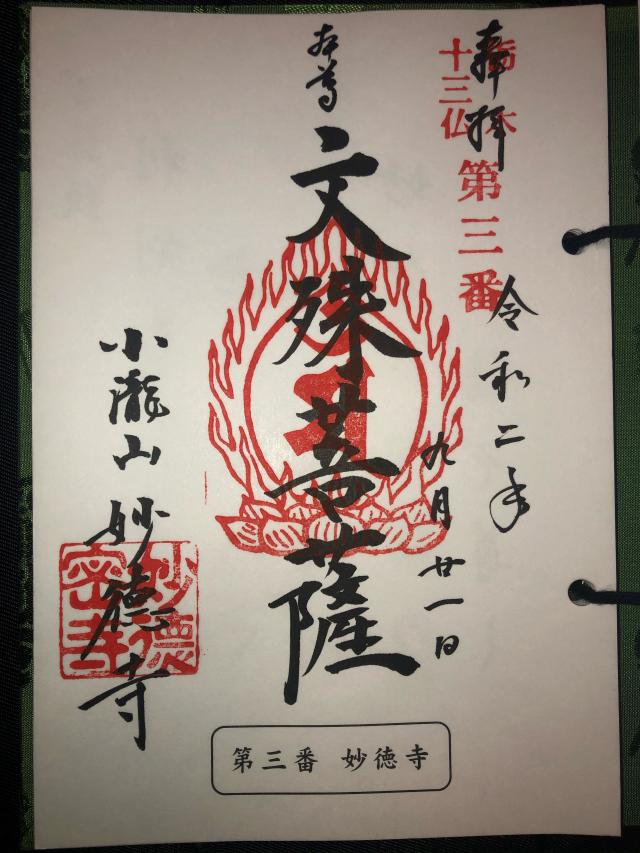 奉拝
栃木
十三仏
第三番
令和二年
九月廿一日
本尊
文殊菩薩
小瀧山 妙徳寺
妙徳
密寺
第三番 妙徳寺